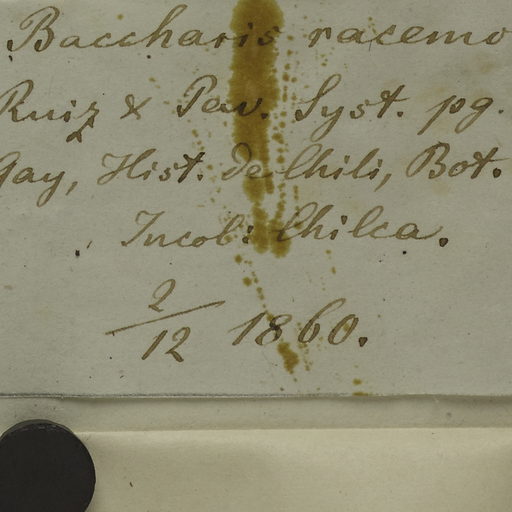 Baccharis racemo
Ruiz & Pav. Syst. pg.
Gay, Hist. de Chili, Bot.
Incol: Chilca.
2/12 1860.